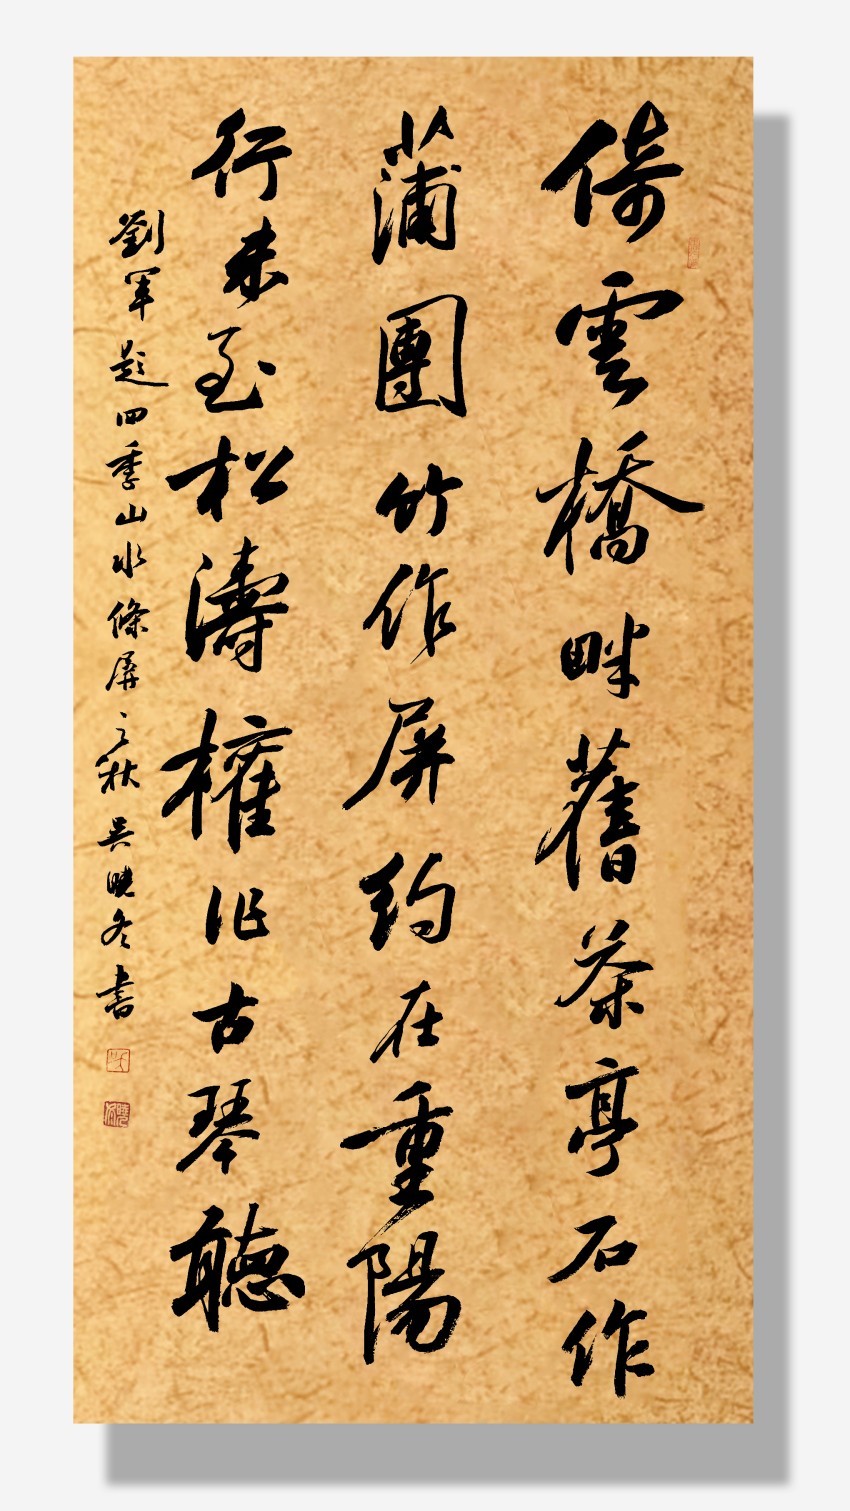 倚雲橋畔舊茶亭石作
蒲團竹作屏約在重陽
行未至松濤權作古琴聽
劉軍題四季山水條屏之秋吳曉冬書